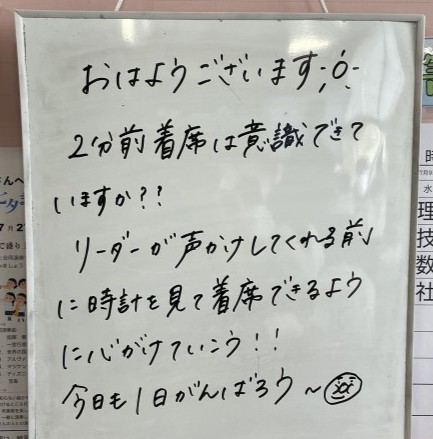 おはようございます
2分前着席は意識できて
いますか??
リーダーが声かけしてくれる前
に時計を見て着席できるよう
に心がけていこう!!
今日も1日がんばろう~
理
技
数
社